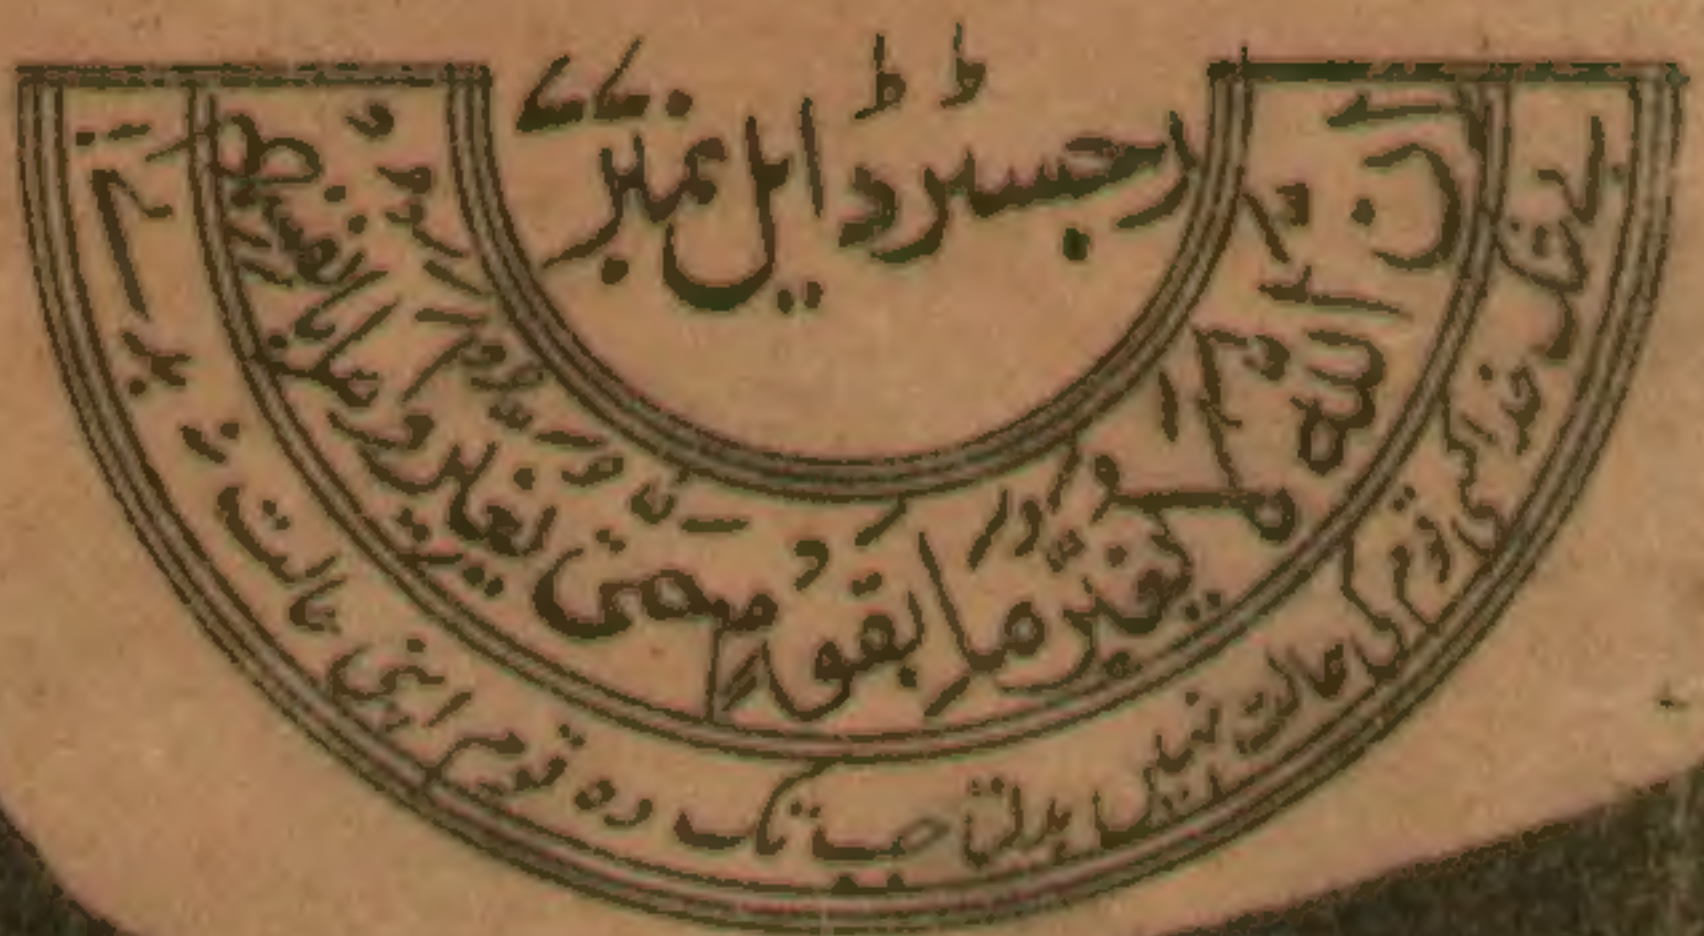 رجسٹرڈ ایل نمبر ۷۷
اِنَّ اللهَ لَا يُغَيِّرُ مَا بِقَوْمٍ حَتّٰى يُغَيِّرُوْا مَا بِاَنْفُسِهِمْ
خدا کسی قوم کی حالت نہیں بدلتا جب تک وہ قوم اپنی حالت نہ بدلے